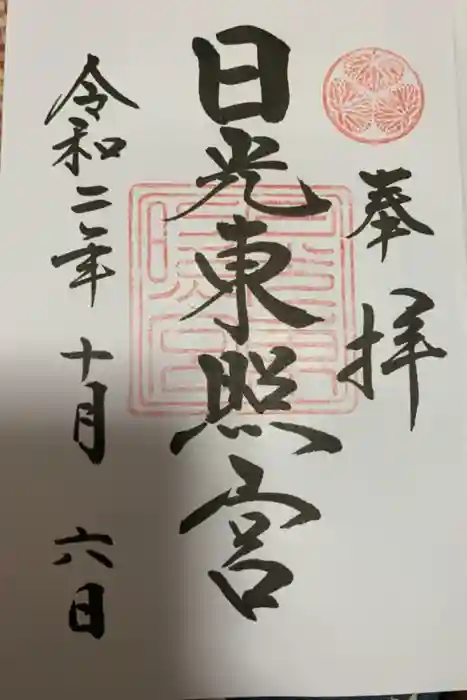 奉拝
日光東照宮
令和二年十月六日